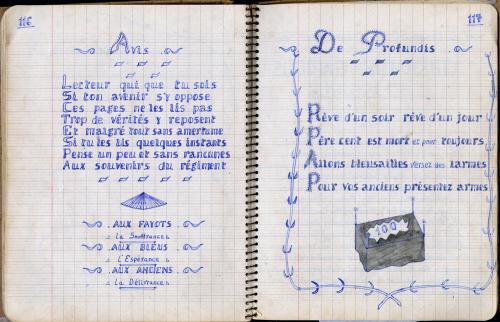 116
Avis
Lecteur qui que tu sois
Si ton avenir s'y oppose
Ces pages ne les lis pas
Trop de vérités y reposent
Et malgré tout sans amertume
Si tu les lis quelques instants
Pense un peu et sans rancunes
Aux souvenirs du régiment
. AUX FAYOTS .
La Souffrance
. AUX BLEUS .
L'Espérance
. AUX ANCIENS .
La Délivrance
117
De Profundis
Rêve d'un soir rêve d'un jour
Père cent est mort et pour toujours
Allons bleusailles versez des larmes
Pour vos anciens présentez armes
100